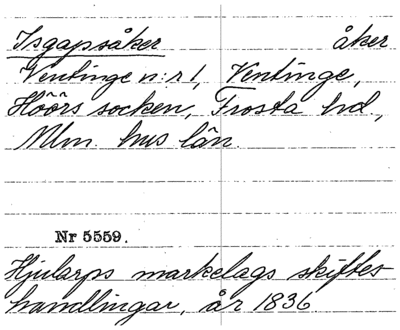 Isgapsåker åker
Ventinge n:r 1, Ventinge,
Höörs socken, Frosta hd.,
Mlm. hus län.
Nr 5559.
Hjularps markelags skiftes
handlingar, år 1836.